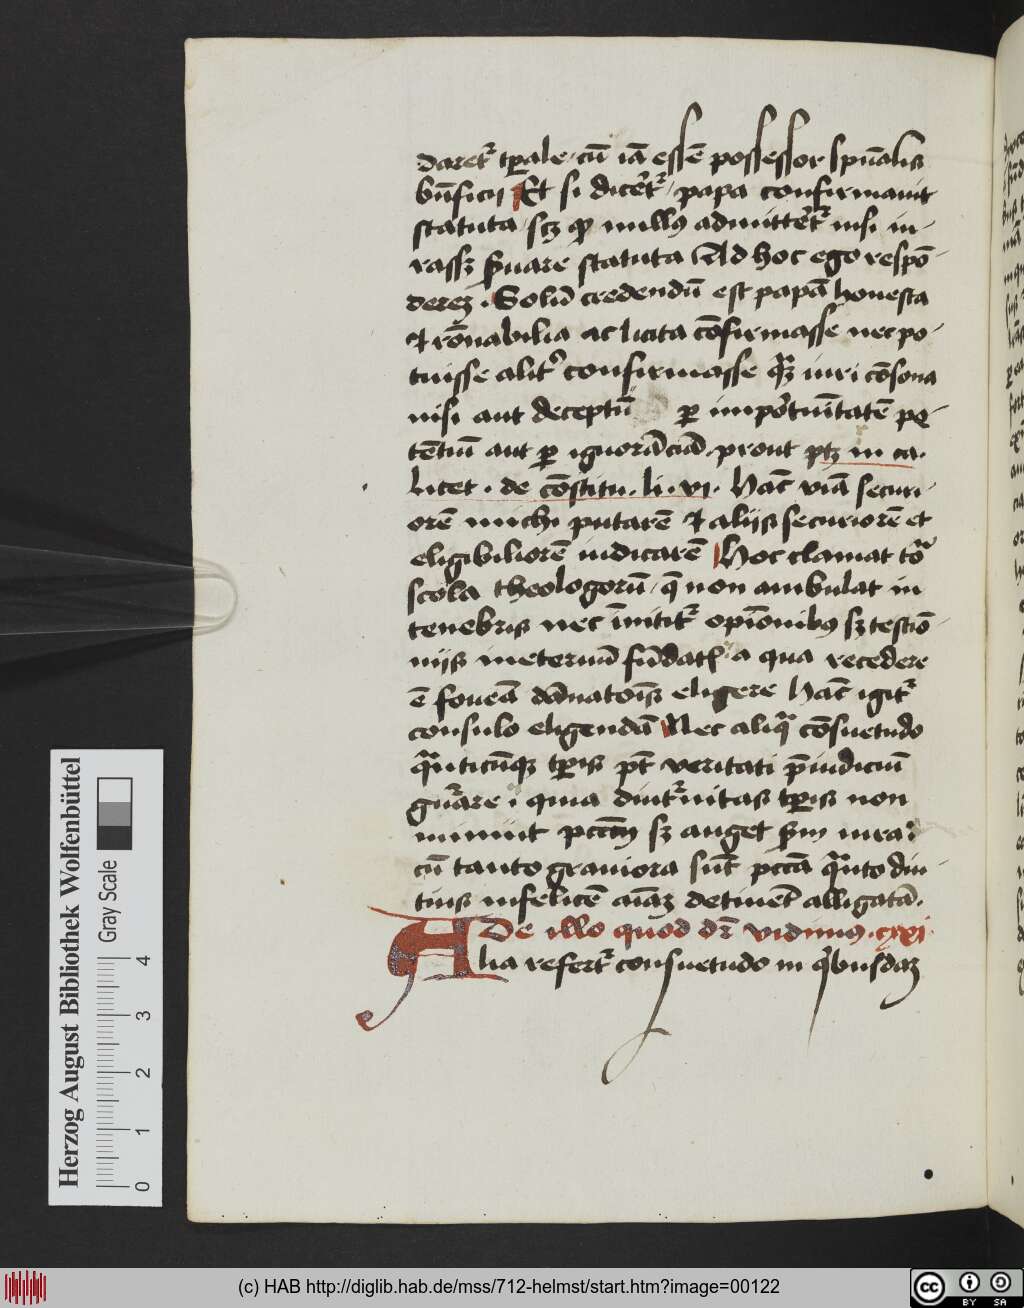 daret᷑ tp̲ale · cū iā essē possessor sp̄ualis
bn̄ficij Et si dicet᷑ · papa confirmauit
statuta · scꝫ ꝙ nullꝰ admittet᷑ nisi iu-
rassꝫ ẜuare statuta Ad hoc ego respō-
derez · Solū credendū est papā honesta
⁊ rōnabilia ac licita cōfirmasse nec po-
tuisse alit᷑ confirmasse iuri cōsona
nisi aut deceptū ꝑ importuītatē pe-
tētiū aut ꝑ ignorācīā · prout ptꝫ in ca.
licet · de cōstitu. li. vi. Hāc viā securi-
orē michi putarē ⁊ aliis securiorē et
eligibiliorē iudicarē Hoc clamat tō
scola theologorū · q̄ non ambulat in
tenebris nec īnitit᷑ opīonibꝰ sꝫ testiō-
niis fūdat᷑ · a qua recedere
ē foueā dānatōis eligere Hāc igit᷑
consulo eligendā Nec aliqͣ cōsuetudo
qͣnticūqꝫ tp̲is pt̄ veritati p̄iudiciū
gn̄are · quia diut᷑nitas tp̲is non
minuit pctm̄ sꝫ auget
cū tanto grauiora sūt pctā qͣnto diu-
tius infelicē aīaꝫ detinet alligatā ·
De illo quod dr̄ vidimus · cxxi
Alia refert᷑ consuetudo in qⁱbusdaꝫ
Herzog August Bibliothek Wolfenbüttel
Gray Scale
0 1 2 3 4
(c) HAB http://diglib.hab.de/mss/712-helmst/start.htm?image=00122
cc BY SA